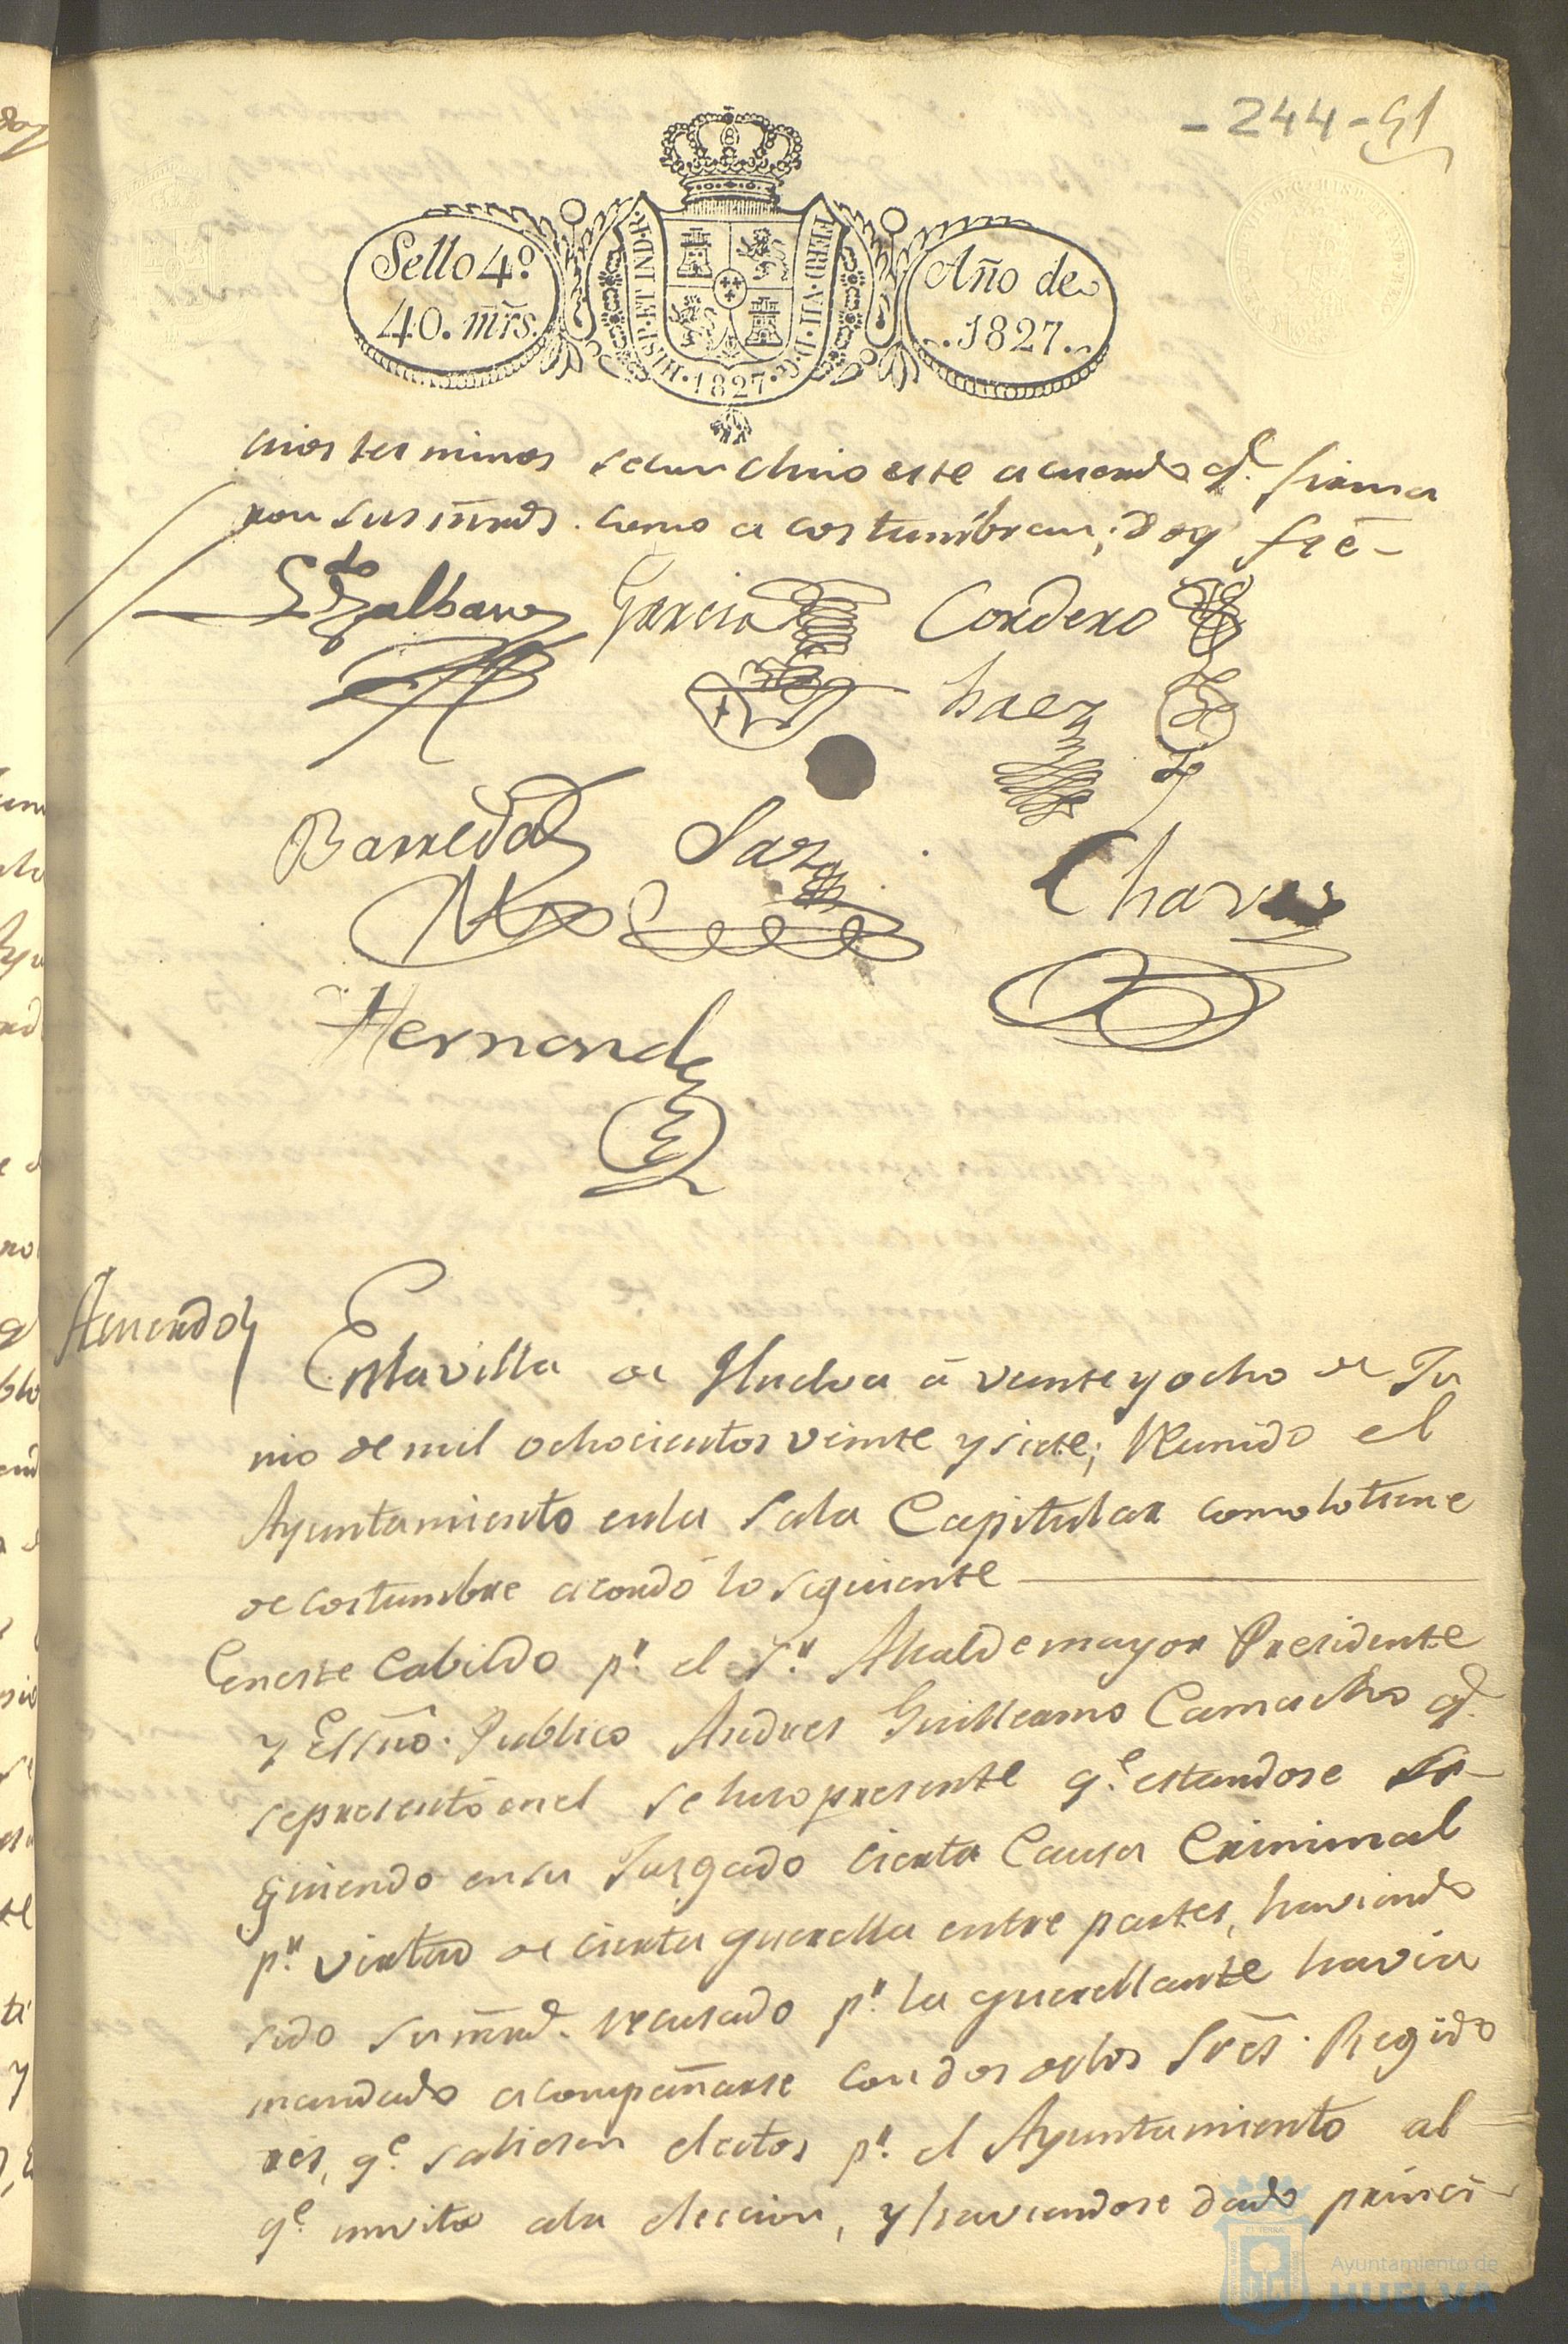 - 244 - 51
Sello 4º.
40. mrs.
HISP. ET IND. R.
FERD. VII. D. G.
1827
Año de
1827.
terminos se concluio este acuerdo q.e firma
ron sus mrds. como acostumbran; doy fee -
Ldo Zalbano
Garcia
Cordero
Saez
Barreda
Saz
Chaves
Hernandez
Acuerdo
En la villa de Huelva á veinte y ocho de Ju
nio de mil ochocientos veinte y siete; Reunido el
Ayuntamiento en la Sala Capitular como lo tiene
de costumbre acordó lo siguiente
En este Cabildo p.r el S.r Alcalde mayor Presidente
y Essno. Publico Andres Guillermo Camacho q.e
se presentó en el se hiso presente q.e estandose si-
guiendo en su Jusgado cierta Causa Criminal
p.r virtud de cierta querella entre partes, haviendo
sido su mrd. recusado p.r la querellante havia
mandado acompañarse con dos de los Sres. Regido
res, q.e saliesen electos p.r el Ayuntamiento al
q.e invita a la eleccion, y haviendose dado princi-
Ayuntamiento de
HUELVA